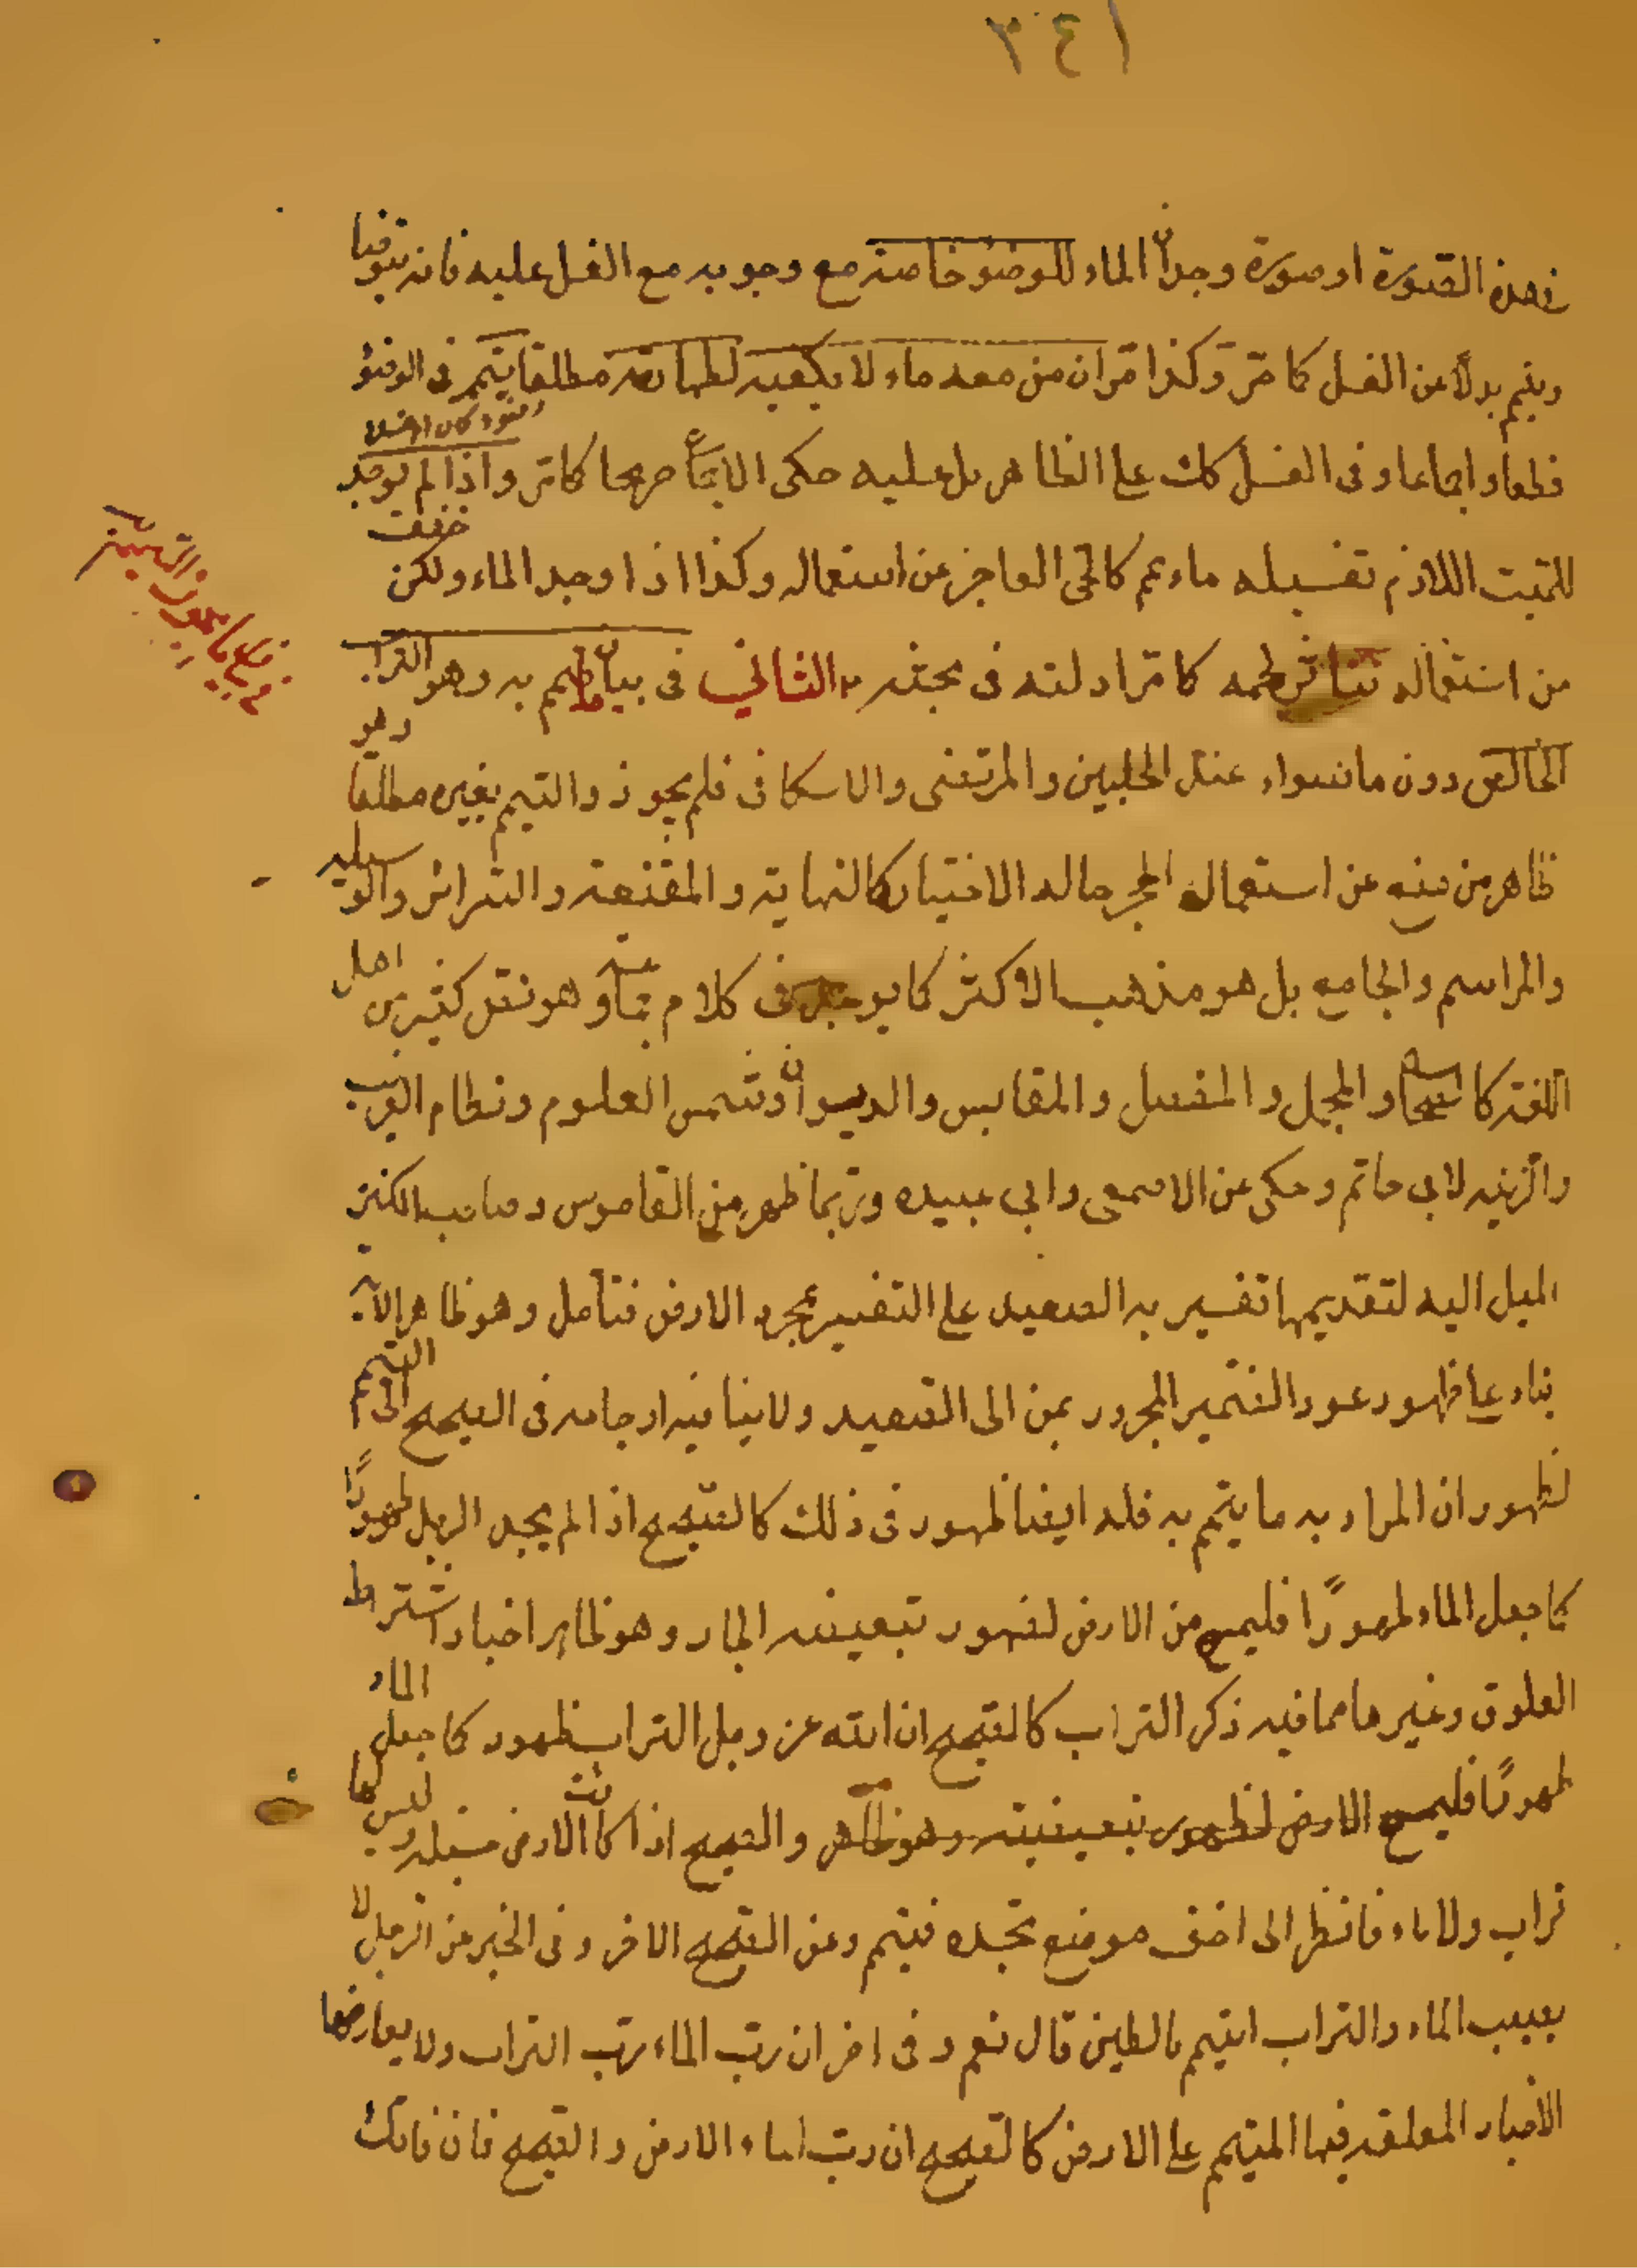 ٣٤١
في هذه الصورة او صورة وجدان الماء للوضوء خاصة مع وجوبه مع الغسل عليه فانه يتوضا
ويتيم بدلاً عن الغسل كما مرّ وكذا مرّ ان من معه ماء لا يكفيه لطهارته مطلقا يتيمم في الوضوء
قطعا واجماعا وفى الغسل كذلك على الظاهر بل عليه حكى الاجماع صريحا كما مرّ واذا لم يوجد
للميت اللازم تغسيله ماء يمم كالحى العاجز عن استعماله وكذا اذا وجد الماء ولكن خفت
من استعماله تناثر لحمه كما مرّ ادلته فى بحثه الثاني فى بيان ما يتيمم به وهو التراب
الخالص دون ما سواه عند الحلبيين والمرتضى والاسكافى فلم يجوزوا التيمم بغيره مطلقا وهو
ظاهر من منع عن استعمال الحجر حالة الاختيار كالنهاية والمقنعة والسرائر والوسيلة
والمراسم والجامع بل هو مذهب الاكثر كما يوجد فى كلام جماعة وهو نقل كثير من اهل
اللغة كالصحاح والمجمل والمفصل والمقايس والديوان وشمس العلوم ونظام الغريب
والزينة لابي حاتم وحكى عن الاصمعى وابي عبيده وربّما ظهر من القاموس وصاحب الكنز
الميل اليه لتقديمها تفسير به الصعيد على التفسير بمجرد الارض فتأمل وهو ظاهر الآية
بناء على ظهور عود الضمير المجرور بمن الى الصعيد ولا ينافيه ارجاعه فى الصحيح الى التيمم
لظهور ان المراد به ما يتيمم به فله ايضا ظهور فى ذلك كالصحيح اذا لم يجد الرجل طهورًا
كما جعل الماء طهورًا فليمسح من الارض لظهور تبعيضه الجار وهو ظاهر اخبار اشتراط
العلوق وغيرها مما فيه ذكر التراب كالصحيح ان الله عز وجل التراب طهور كما جعل الماء
طهورًا فليمسح الارض لظهور تبعيضيته وهو ظاهر والصحيح اذا كانت الارض مبتلة وليس فيها
تراب ولا ماء فانظر الى اخف موضع تجده فيتيمم وعن الصحيح الاخر وفى الخبر عن الرجل لا
يصيب الماء والتراب ايتيمم بالطين قال نعم وفى اخر ان ربّ الماء ربّ التراب ولا يعارضها
الاخبار المعلقة فيها التيمم على الارض كالصحيح ان ربّ الماء الارض والصحيح فان فاتك